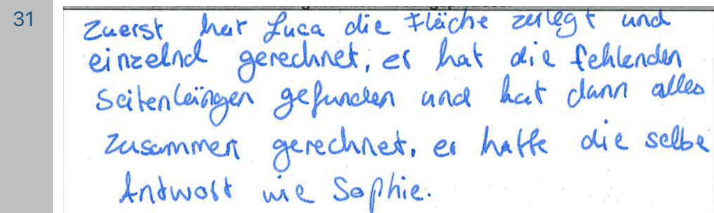 31
Zuerst hat Luca die Fläche zerlegt und
einzelnd gerechnet, er hat die fehlenden
Seitenlängen gefunden und hat dann alles
zusammen gerechnet, er hatte die selbe
Antwort wie Sophie.